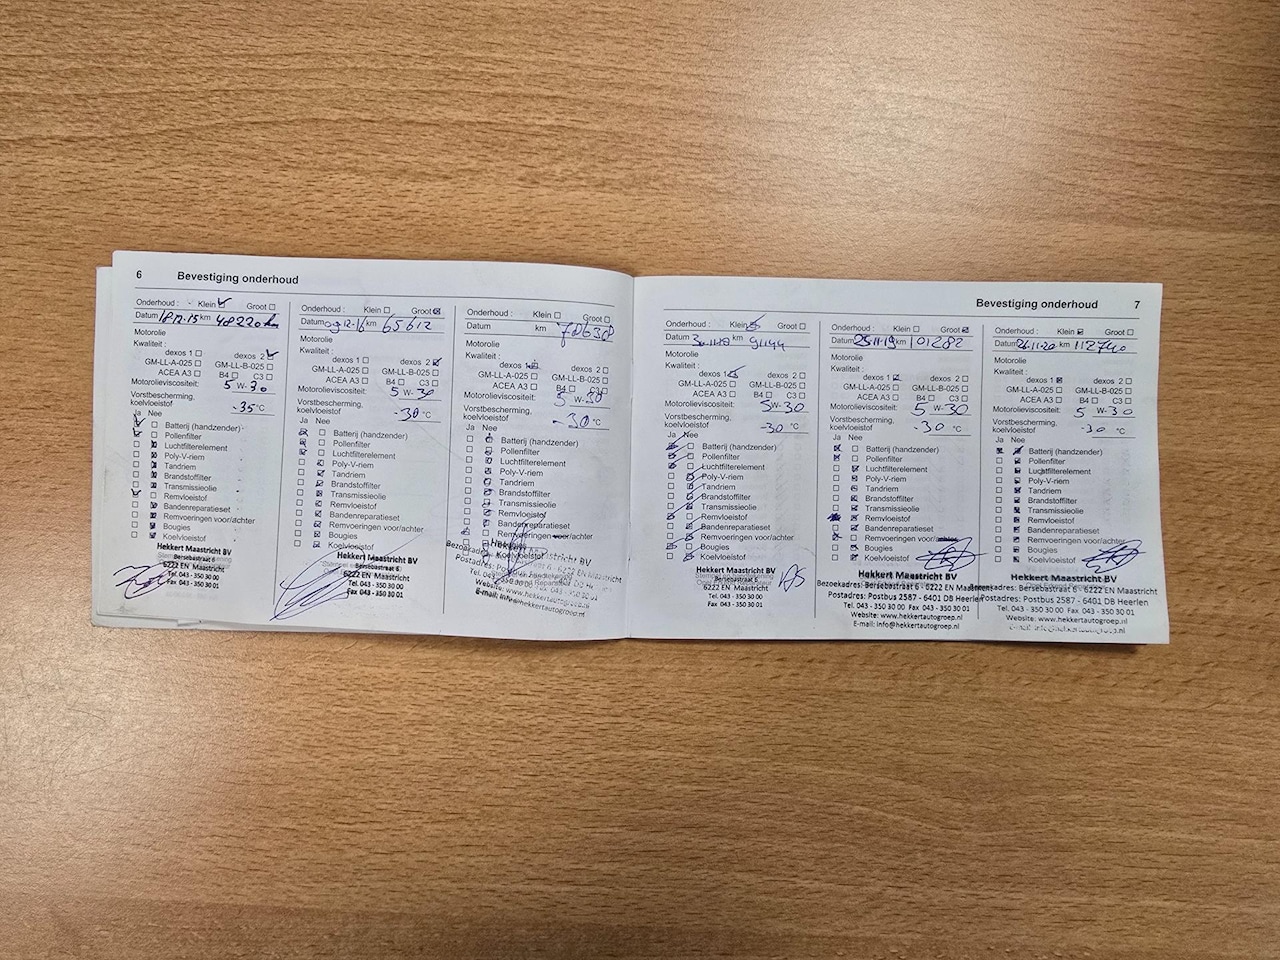 6 Bevestiging onderhoud
Onderhoud : Klein Groot
Datum 18.12.15 km 48220 km
Motorolie
Kwaliteit :
dexos 1 dexos 2
GM-LL-A-025 GM-LL-B-025
ACEA A3 B4 C3
Motorolieviscositeit: 5 W-30
Vorstbescherming,
koelvloeistof -35 °C
Ja Nee
Batterij (handzender)
Pollenfilter
Luchtfilterelement
Poly-V-riem
Tandriem
Brandstoffilter
Transmissieolie
Remvloeistof
Bandenreparatieset
Remvoeringen voor/achter
Bougies
Koelvloeistof
Hekkert Maastricht BV
Bersebastraat 6
6222 EN Maastricht
Tel. 043 - 350 30 00
Fax 043 - 350 30 01
Onderhoud : Klein Groot
Datum 09-12-16 km 65612
Motorolie
Kwaliteit :
dexos 1 dexos 2
GM-LL-A-025 GM-LL-B-025
ACEA A3 B4 C3
Motorolieviscositeit: 5 W-30
Vorstbescherming,
koelvloeistof -30 °C
Ja Nee
Batterij (handzender)
Pollenfilter
Luchtfilterelement
Poly-V-riem
Tandriem
Brandstoffilter
Transmissieolie
Remvloeistof
Bandenreparatieset
Remvoeringen voor/achter
Bougies
Koelvloeistof
Hekkert Maastricht BV
Bersebastraat 6
6222 EN Maastricht
Tel. 043 - 350 30 00
Fax 043 - 350 30 01
Onderhoud : Klein Groot
Datum km 78630
Motorolie
Kwaliteit :
dexos 1 dexos 2
GM-LL-A-025 GM-LL-B-025
ACEA A3 B4 C3
Motorolieviscositeit: 5 W-30
Vorstbescherming,
koelvloeistof -30 °C
Ja Nee
Batterij (handzender)
Pollenfilter
Luchtfilterelement
Poly-V-riem
Tandriem
Brandstoffilter
Transmissieolie
Remvloeistof
Bandenreparatieset
Remvoeringen voor/achter
Bougies
Koelvloeistof
Bevestiging onderhoud 7
Onderhoud : Klein Groot
Datum km 91144
Motorolie
Kwaliteit :
dexos 1 dexos 2
GM-LL-A-025 GM-LL-B-025
ACEA A3 B4 C3
Motorolieviscositeit: 5W-30
Vorstbescherming,
koelvloeistof -30 °C
Ja Nee
Batterij (handzender)
Pollenfilter
Luchtfilterelement
Poly-V-riem
Tandriem
Brandstoffilter
Transmissieolie
Remvloeistof
Bandenreparatieset
Remvoeringen voor/achter
Bougies
Koelvloeistof
Hekkert Maastricht BV
Bersebastraat 6
6222 EN Maastricht
Tel. 043 - 350 30 00
Fax 043 - 350 30 01
Onderhoud : Klein Groot
Datum 25-11-19 km 101282
Motorolie
Kwaliteit :
dexos 1 dexos 2
GM-LL-A-025 GM-LL-B-025
ACEA A3 B4 C3
Motorolieviscositeit: 5 W-30
Vorstbescherming,
koelvloeistof -30 °C
Ja Nee
Batterij (handzender)
Pollenfilter
Luchtfilterelement
Poly-V-riem
Tandriem
Brandstoffilter
Transmissieolie
Remvloeistof
Bandenreparatieset
Remvoeringen voor/achter
Bougies
Koelvloeistof
Hekkert Maastricht BV
Bezoekadres: Bersebastraat 6 - 6222 EN Maastricht
Postadres: Postbus 2587 - 6401 DB Heerlen
Tel. 043 - 350 30 00 Fax 043 - 350 30 01
Website: www.hekkertautogroep.nl
E-mail: info@hekkertautogroep.nl
Onderhoud : Klein Groot
Datum 24.11-20 km 112740
Motorolie
Kwaliteit :
dexos 1 dexos 2
GM-LL-A-025 GM-LL-B-025
ACEA A3 B4 C3
Motorolieviscositeit: 5 W-30
Vorstbescherming,
koelvloeistof -30 °C
Ja Nee
Batterij (handzender)
Pollenfilter
Luchtfilterelement
Poly-V-riem
Tandriem
Brandstoffilter
Transmissieolie
Remvloeistof
Bandenreparatieset
Remvoeringen voor/achter
Bougies
Koelvloeistof
Hekkert Maastricht BV
Bezoekadres: Bersebastraat 6 - 6222 EN Maastricht
Postadres: Postbus 2587 - 6401 DB Heerlen
Tel. 043 - 350 30 00 Fax 043 - 350 30 01
Website: www.hekkertautogroep.nl